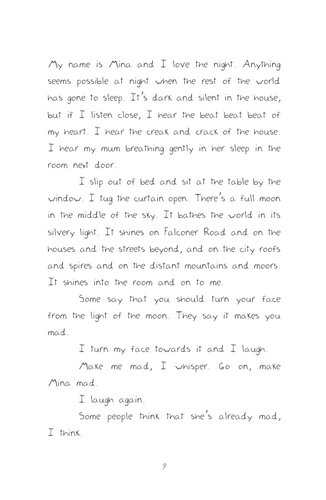 My name is Mina and I love the night. Anything
seems possible at night when the rest of the world
has gone to sleep. It's dark and silent in the house,
but if I listen close, I hear the beat beat beat of
my heart. I hear the creak and crack of the house.
I hear my mum breathing gently in her sleep in the
room next door.
I slip out of bed and sit at the table by the
window. I tug the curtain open. There's a full moon
in the middle of the sky. It bathes the world in its
silvery light. It shines on Falconer Road and on the
houses and the streets beyond, and on the city roofs
and spires and on the distant mountains and moors.
It shines into the room and on to me.
Some say that you should turn your face
from the light of the moon. They say it makes you
mad.
I turn my face towards it and I laugh.
Make me mad, I whisper. Go on, make
Mina mad.
I laugh again.
Some people think that she's already mad,
I think.
9